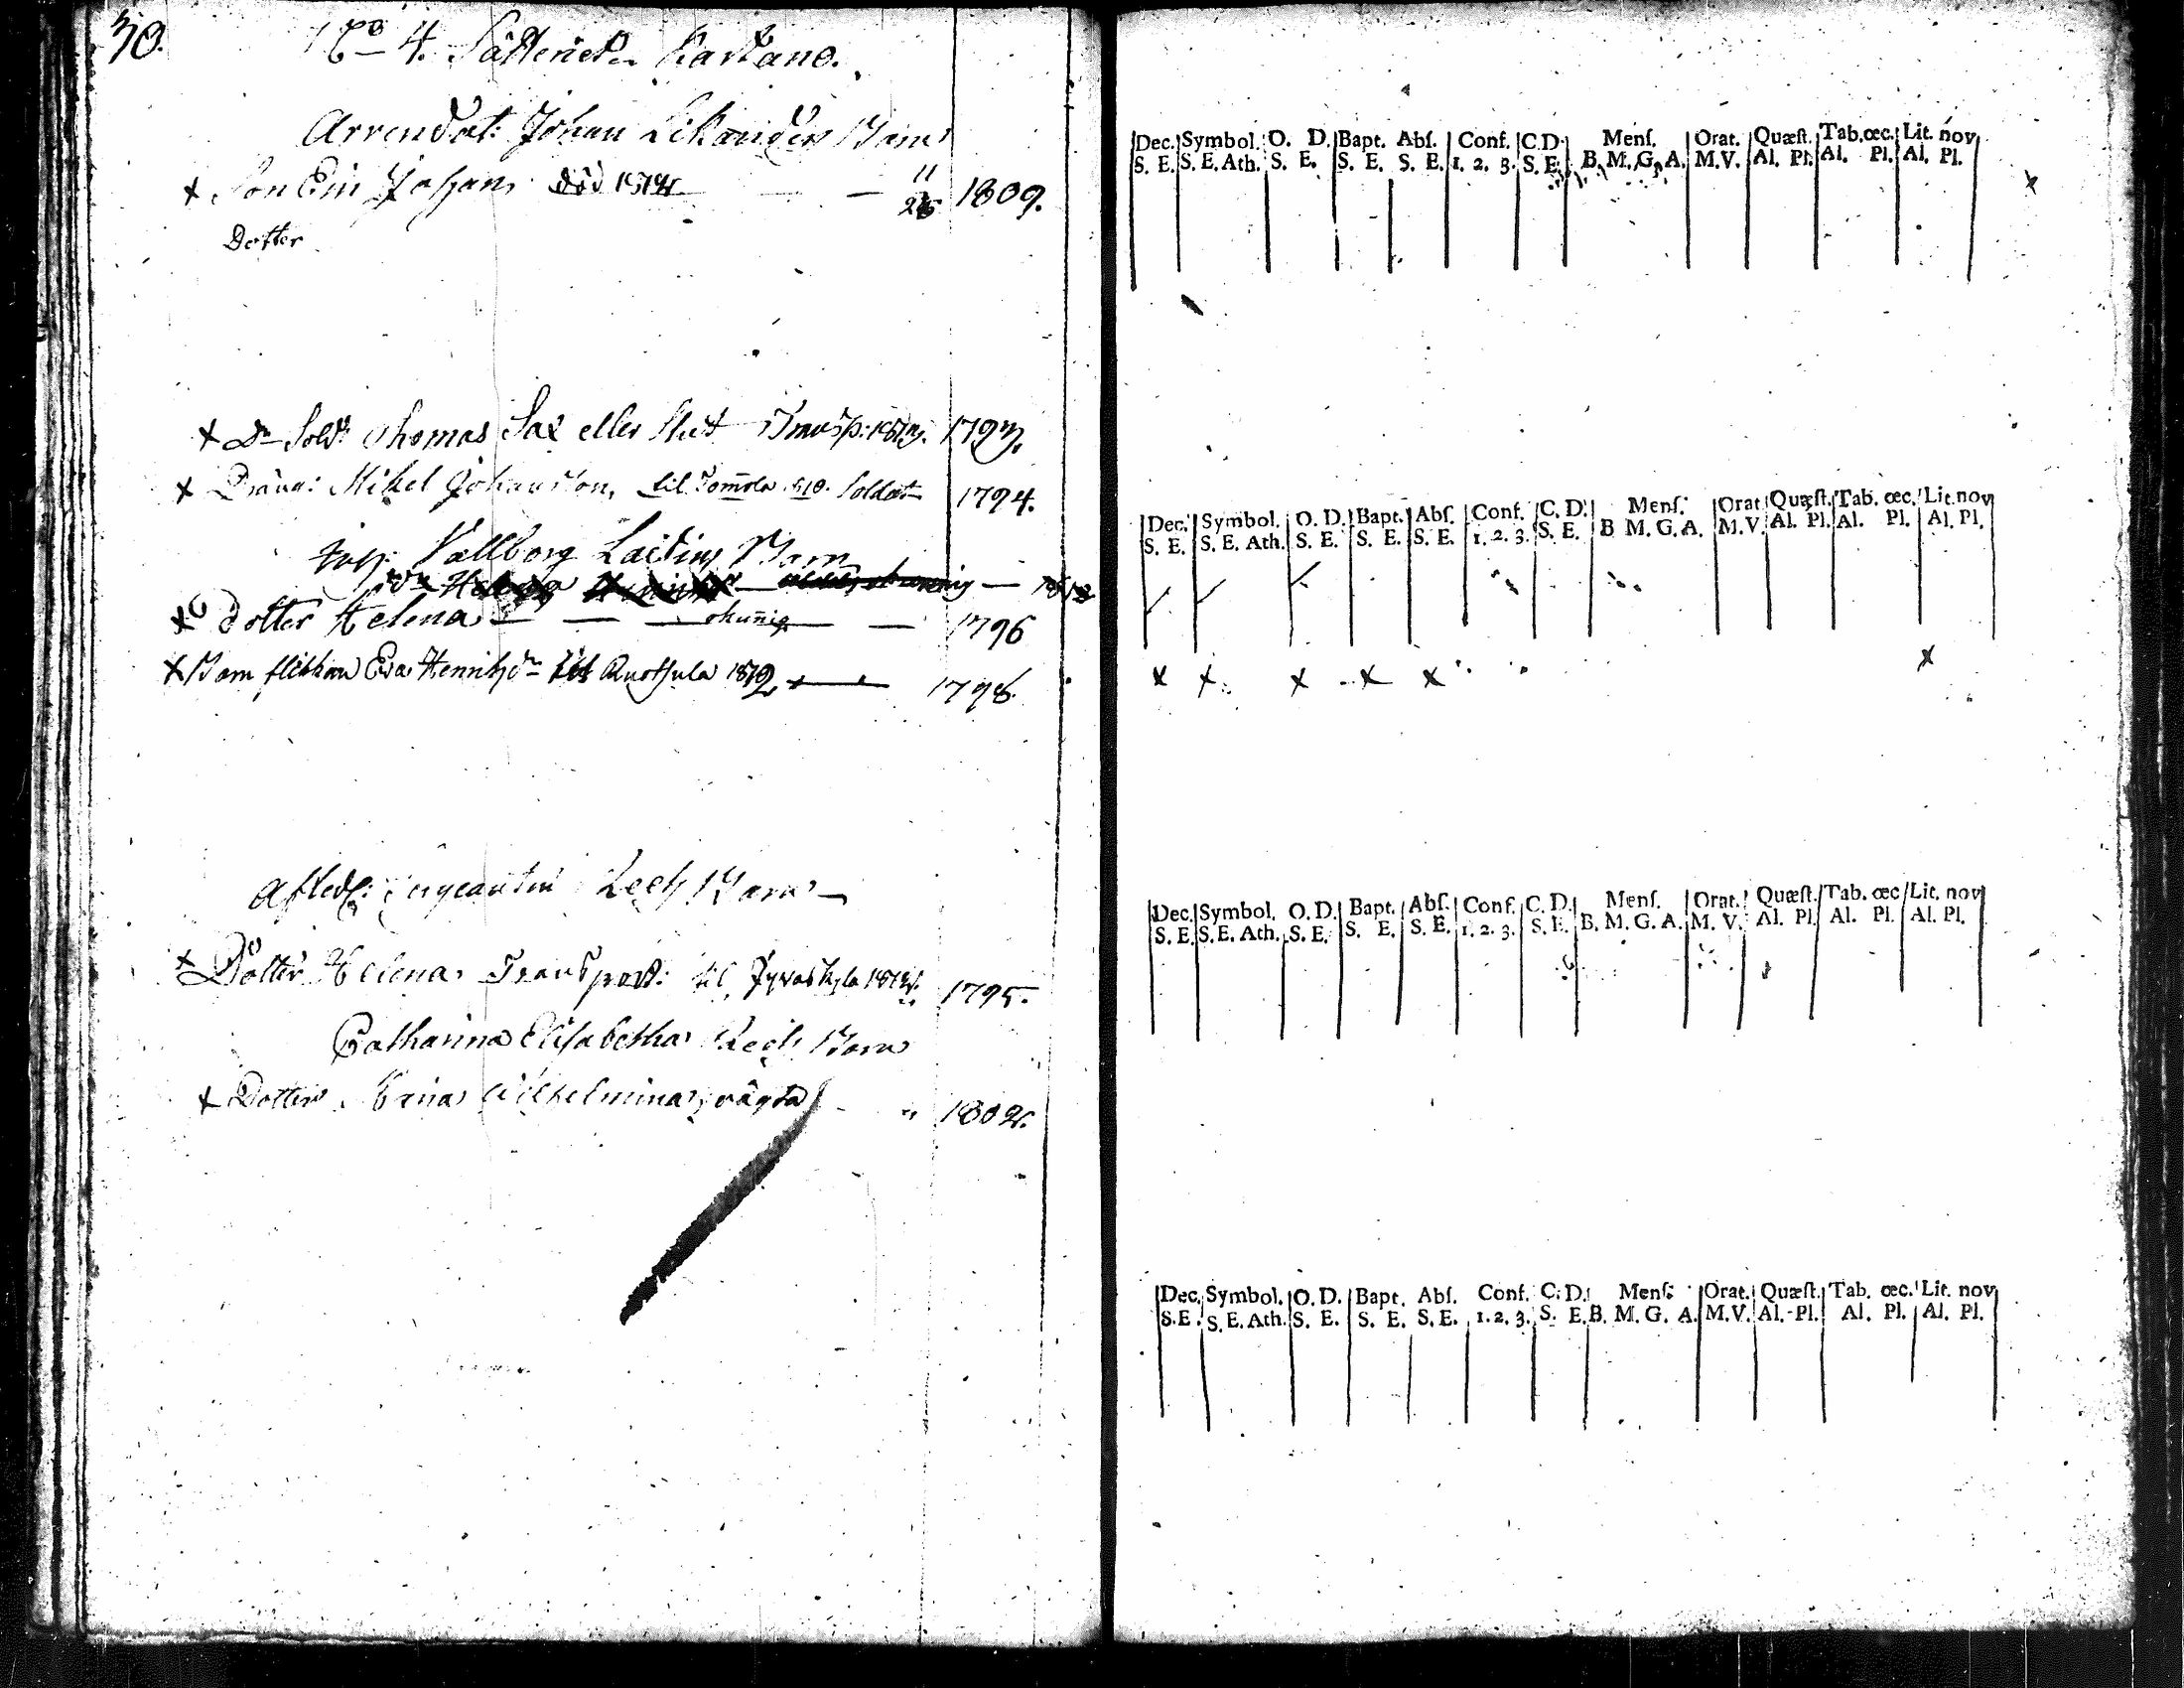 No 4. Säteriet Kartano.
Arrendat: Johan Likanders Barn
+ Son Eric Johan, död 1812 — — 11/26 1809.
Dotter
+ Dr Sold: Thomas Sax eller Transp: 1793.
+ Dräng: Mikel Johansson, til 510. Soldat 1794.
Vallborg Laitins Barn
+ Dotter Helena — — okunnig — 1796
+ Barn flickan Eva Henriksdr til 1812 — 1798.
Afsked: Sergeanten Barn —
+ Dotter Helena Transport: til Jyväskylä 1795.
Catharina Elisabetha Barn
+ Dotter Wilhelmina 1802.
Dec. Symbol. O. D. Bapt. Abſ. Conf. C.D. Menſ. Orat. Quæſt. Tab. œc. Lit. nov
S. E. S. E. Ath. S. E. S. E. S. E. 1. 2. 3. S. E. B. M. G. A. M.V. Al. Pl. Al. Pl. Al. Pl.
Dec. Symbol. O. D. Bapt. Abſ. Conf. C. D. Menſ. Orat Quæſt. Tab. œc. Lit. nov
S. E. S. E. Ath. S. E. S. E. S. E. 1. 2. 3. S. E. B M. G. A. M.V. Al. Pl. Al. Pl. Al. Pl.
Dec. Symbol. O. D. Bapt. Abſ. Conf. C. D. Menſ. Orat. Quæſt. Tab. œc Lit. nov
S. E. S. E. Ath. S. E. S. E. S. E. 1. 2. 3. S. E. B. M. G. A. M. V. Al. Pl. Al. Pl. Al. Pl.
Dec. Symbol. O. D. Bapt. Abſ. Conf. C. D. Menſ. Orat. Quæſt. Tab. œc. Lit. nov
S. E. S. E. Ath. S. E. S. E. S. E. 1. 2. 3. S. E. B. M. G. A. M.V. Al. Pl. Al. Pl. Al. Pl.